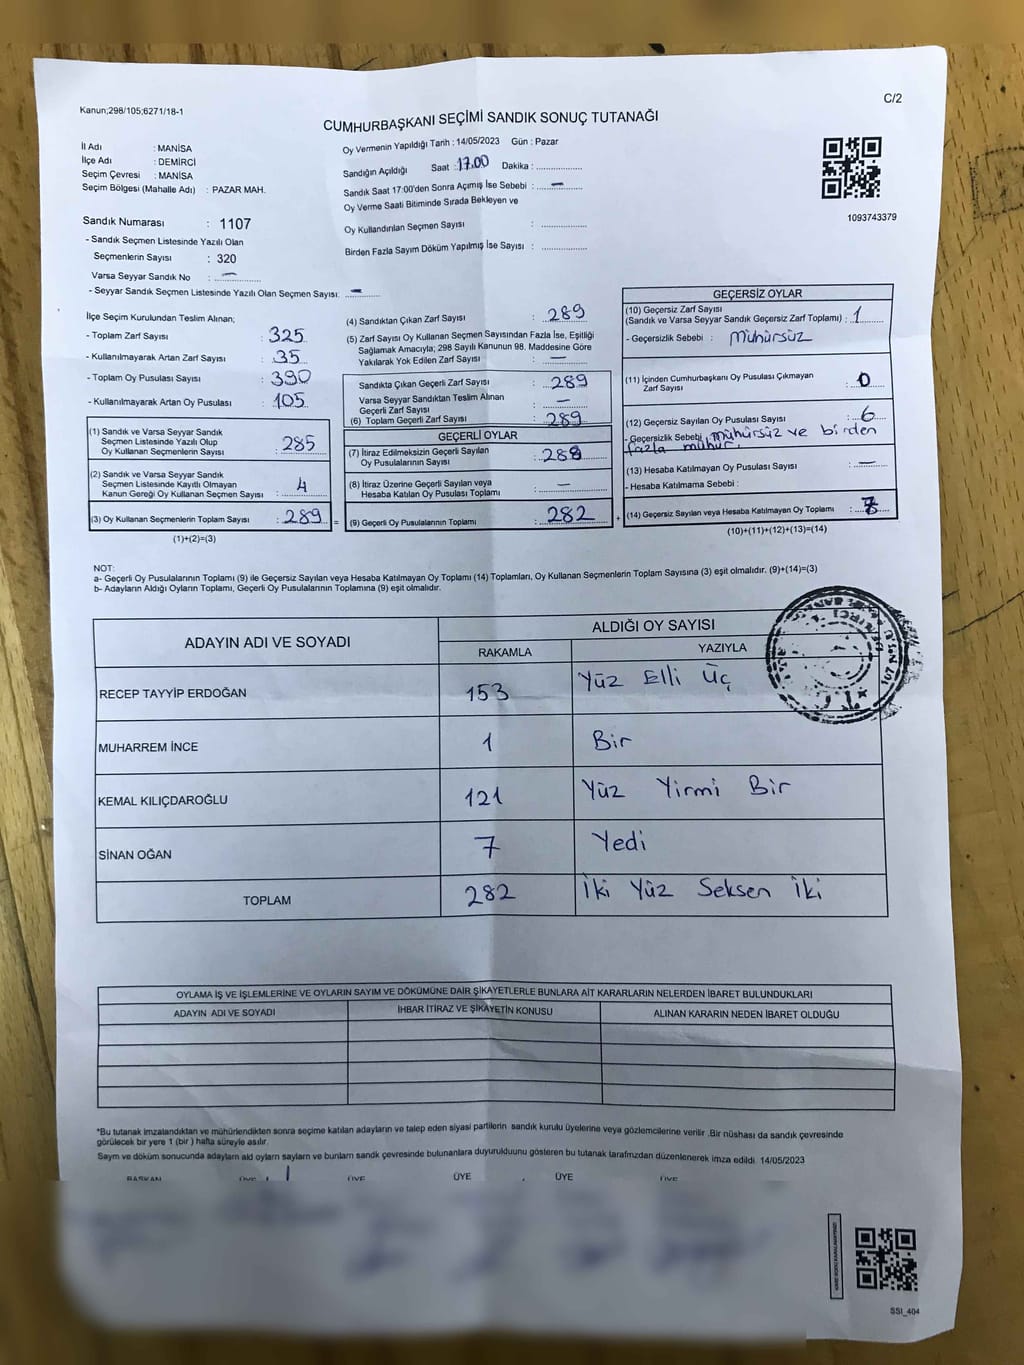 Kanun;298/105;6271/18-1
C/2
CUMHURBAŞKANI SEÇİMİ SANDIK SONUÇ TUTANAĞI
İl Adı : MANİSA
İlçe Adı : DEMİRCİ
Seçim Çevresi : MANİSA
Seçim Bölgesi (Mahalle Adı) : PAZAR MAH.
Oy Vermenin Yapıldığı Tarih : 14/05/2023 Gün : Pazar
Sandığın Açıldığı Saat : 17.00 Dakika :
Sandık Saat 17:00'den Sonra Açımış İse Sebebi : —
Oy Verme Saati Bitiminde Sırada Bekleyen ve
Oy Kullandırılan Seçmen Sayısı :
Birden Fazla Sayım Döküm Yapılmış İse Sayısı :
1093743379
Sandık Numarası : 1107
- Sandık Seçmen Listesinde Yazılı Olan
Seçmenlerin Sayısı : 320
Varsa Seyyar Sandık No : —
- Seyyar Sandık Seçmen Listesinde Yazılı Olan Seçmen Sayısı: —
İlçe Seçim Kurulundan Teslim Alınan;
- Toplam Zarf Sayısı : 325
- Kullanılmayarak Artan Zarf Sayısı : 35
- Toplam Oy Pusulası Sayısı : 390
- Kullanılmayarak Artan Oy Pusulası : 105
(1) Sandık ve Varsa Seyyar Sandık
Seçmen Listesinde Yazılı Olup
Oy Kullanan Seçmenlerin Sayısı : 285
(2) Sandık ve Varsa Seyyar Sandık
Seçmen Listesinde Kayıtlı Olmayan
Kanun Gereği Oy Kullanan Seçmen Sayısı : 4
(3) Oy Kullanan Seçmenlerin Toplam Sayısı : 289 =
(1)+(2)=(3)
(4) Sandıktan Çıkan Zarf Sayısı : 289
(5) Zarf Sayısı Oy Kullanan Seçmen Sayısından Fazla İse, Eşitliği
Sağlamak Amacıyla; 298 Sayılı Kanunun 98. Maddesine Göre
Yakılarak Yok Edilen Zarf Sayısı : —
Sandıkta Çıkan Geçerli Zarf Sayısı : 289
Varsa Seyyar Sandıktan Teslim Alınan
Geçerli Zarf Sayısı : —
(6) Toplam Geçerli Zarf Sayısı : 289
GEÇERLİ OYLAR
(7) İtiraz Edilmeksizin Geçerli Sayılan
Oy Pusulalarının Sayısı :
(8) İtiraz Üzerine Geçerli Sayılan veya
Hesaba Katılan Oy Pusulası Toplamı : —
(9) Geçerli Oy Pusulalarının Toplamı : 282 +
GEÇERSİZ OYLAR
(10) Geçersiz Zarf Sayısı
(Sandık ve Varsa Seyyar Sandık Geçersiz Zarf Toplamı) : 1
- Geçersizlik Sebebi : Mühürsüz
(11) İçinden Cumhurbaşkanı Oy Pusulası Çıkmayan
Zarf Sayısı : 0
(12) Geçersiz Sayılan Oy Pusulası Sayısı : 6
- Geçersizlik Sebebi : mühürsüz ve birden
fazla mühür.
(13) Hesaba Katılmayan Oy Pusulası Sayısı : —
- Hesaba Katılmama Sebebi :
(14) Geçersiz Sayılan veya Hesaba Katılmayan Oy Toplamı : 7
(10)+(11)+(12)+(13)=(14)
NOT:
a- Geçerli Oy Pusulalarının Toplamı (9) ile Geçersiz Sayılan veya Hesaba Katılmayan Oy Toplamı (14) Toplamları, Oy Kullanan Seçmenlerin Toplam Sayısına (3) eşit olmalıdır. (9)+(14)=(3)
b- Adayların Aldığı Oyların Toplamı, Geçerli Oy Pusulalarının Toplamına (9) eşit olmalıdır.
ADAYIN ADI VE SOYADI
ALDIĞI OY SAYISI
RAKAMLA YAZIYLA
RECEP TAYYİP ERDOĞAN 153 Yüz Elli Üç
MUHARREM İNCE 1 Bir
KEMAL KILIÇDAROĞLU 121 Yüz Yirmi Bir
SİNAN OĞAN 7 Yedi
TOPLAM 282 İki Yüz Seksen İki
OYLAMA İŞ VE İŞLEMLERİNE VE OYLARIN SAYIM VE DÖKÜMÜNE DAİR ŞİKAYETLERLE BUNLARA AİT KARARLARIN NELERDEN İBARET BULUNDUKLARI
ADAYIN ADI VE SOYADI İHBAR İTİRAZ VE ŞİKAYETİN KONUSU ALINAN KARARIN NEDEN İBARET OLDUĞU
*Bu tutanak imzalandıktan ve mühürlendikten sonra seçime katılan adayların ve talep eden siyasi partilerin sandık kurulu üyelerine veya gözlemcilerine verilir .Bir nüshası da sandık çevresinde
görülecek bir yere 1 (bir ) hafta süreyle asılır.
Saym ve döküm sonucunda adayların ald oyların sayların ve bunlam sandk çevresinde bulunanlara duyurulduunu gösteren bu tutanak tarafmzdan düzenlenerek imza edildi. 14/05/2023
BAŞKAN ÜYE ÜYE ÜYE ÜYE ÜYE
SSI_404